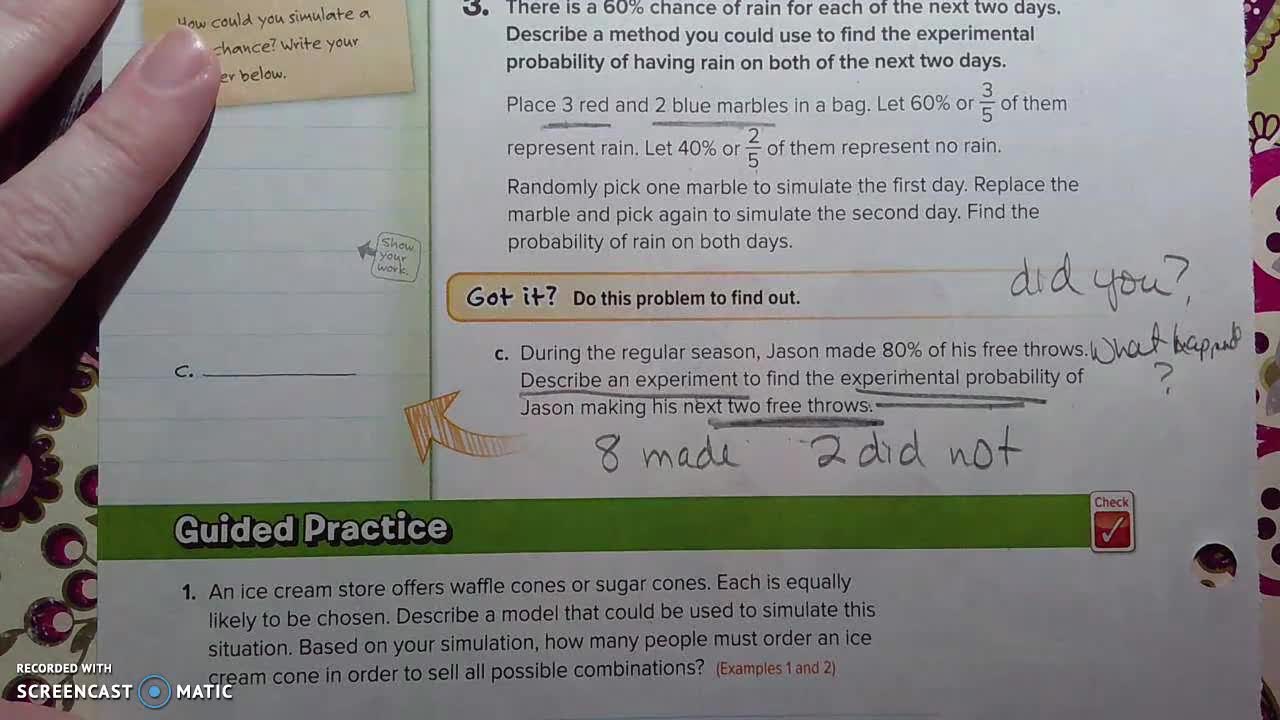 How could you simulate a
chance? Write your
er below.
3. There is a 60% chance of rain for each of the next two days.
Describe a method you could use to find the experimental
probability of having rain on both of the next two days.
Place 3 red and 2 blue marbles in a bag. Let 60% or 3/5 of them
represent rain. Let 40% or 2/5 of them represent no rain.
Randomly pick one marble to simulate the first day. Replace the
marble and pick again to simulate the second day. Find the
probability of rain on both days.
Show
your
work.
Got it? Do this problem to find out.
did you?
c. During the regular season, Jason made 80% of his free throws.
What happened
?
Describe an experiment to find the experimental probability of
Jason making his next two free throws.
c.
8 made 2 did not
Guided Practice
Check
1. An ice cream store offers waffle cones or sugar cones. Each is equally
likely to be chosen. Describe a model that could be used to simulate this
situation. Based on your simulation, how many people must order an ice
cream cone in order to sell all possible combinations? (Examples 1 and 2)
RECORDED WITH
SCREENCAST MATIC